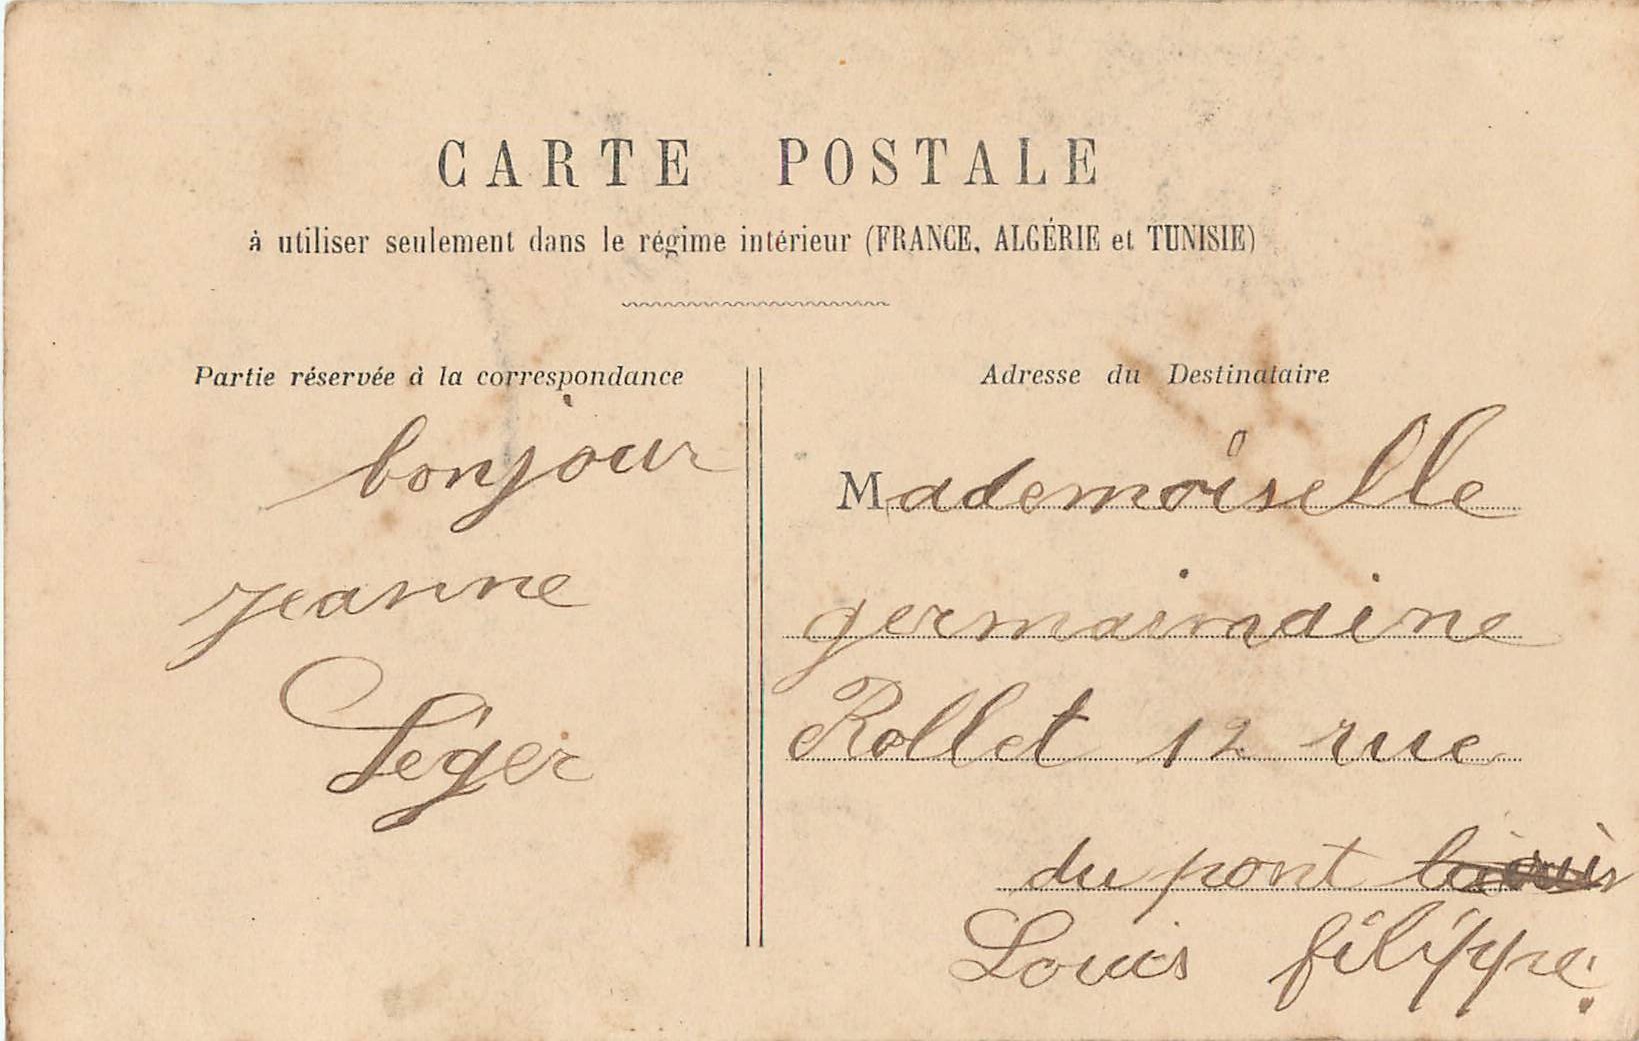 CARTE POSTALE
à utiliser seulement dans le régime intérieur (FRANCE, ALGÉRIE et TUNISIE)
Partie réservée à la correspondance
bonjour
jeanne
Léger
Adresse du Destinataire
Mademoiselle
germainaine
Rollet 12 rue
du pont
Louis filippe.